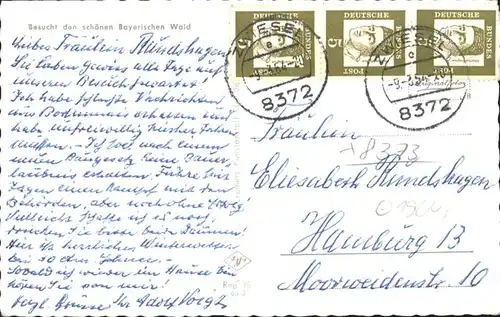 Besucht den schönen Bayerischen Wald
Liebes Fräulein Rundshagen!
Sie haben gewiss alle Tage auf
unseren Bericht gewartet.
Ich habe schlechte Nachrichten
aus Bodenmais erhalten und
habe unfreiwillig hierher fahren
müssen. - Ich soll nach einem
neuen Baugesetz keine Bauer-
laubnis erhalten. Führe seit
Tagen einen Kampf mit den
Behörden, aber noch ohne Erfolg.
Vielleicht schaffe ich es noch,
drücken Sie bitte beide Daumen!
Hier ist herrliches Winterwetter
bei 40 cm Schnee. -
Sobald ich wieder im Hause bin
hören Sie von mir!
Hrzl. Grüsse Ihr Adolf Voigt
DEUTSCHE BUNDESPOST 5
DEUTSCHE BUNDESPOST 5
DEUTSCHE BUNDESPOST 5
ZWIESEL
8372
ZWIESEL
8372
Fräulein
8373
Elisabeth Rundshagen
Hamburg 13
Moorweidenstr. 10